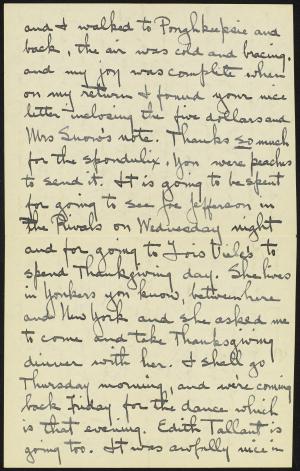 and I walked to Poughkeepsie and
back, the air was cold and bracing,
and my joy was complete when
on my return I found your nice
letter inclosing the five dollars and
Mrs Snow's note. Thanks so much
for the spondulix. You were peaches
to send it. It is going to be spent
for going to see Joe Jefferson in
the Rivals on Wednesday night
and for going to Lois Vile's to
spend Thanksgiving day. She lives
in Yonkers you know, between here
and New York and she asked me
to come and take Thanksgiving
dinner with her. I shall go
Thursday morning, and we're coming
back Friday for the dance which
is that evening. Edith Tallant is
going too. It was awfully nice in